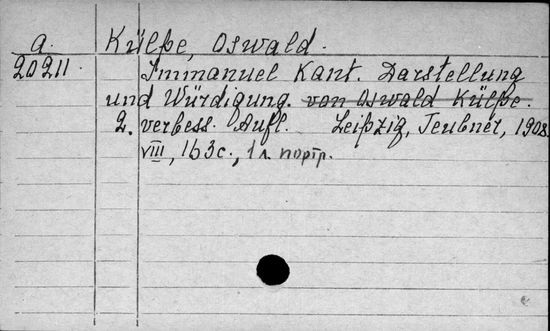 a. Külpe, Oswald.
20211. Immanuel Kant. Darstellung
und Würdigung. von Oswald Külpe.
2. verbess. Aufl. Leipzig, Teubner, 1908.
VIII, 163 c., 1 л. портр.